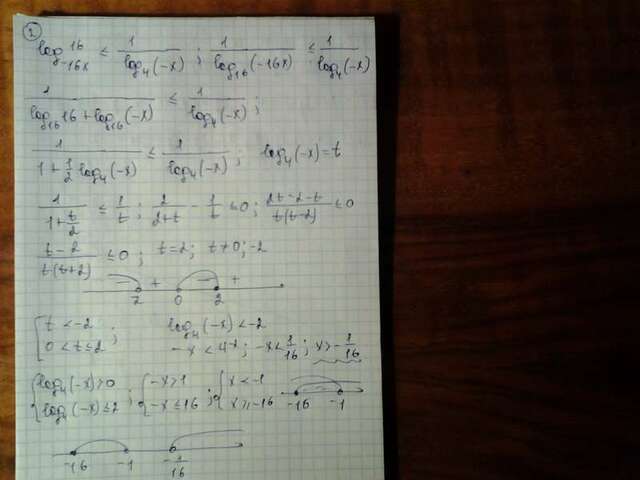 2
log_{-16x} 16 ≤ 1/log_4(-x) ; 1/log_{16}(-16x) ≤ 1/log_4(-x)
1/(log_{16}16 + log_{16}(-x)) ≤ 1/log_4(-x) ;
1/(1 + 1/2 log_4(-x)) ≤ 1/log_4(-x) ; log_4(-x) = t
1/(1 + t/2) ≤ 1/t ; 2/(2+t) - 1/t ≤ 0 ; (2t-2-t)/(t(t-2)) ≤ 0
(t-2)/(t(t+2)) ≤ 0 ; t=2 ; t≠0 ; -2
- + - +
2 0 2
t < -2 ; log_4(-x) < -2
0 < t ≤ 2 -x < 4^{-2} ; -x < 1/16 ; x > -1/16
{log_4(-x) > 0 ; {-x > 1 ; {x < -1
{log_4(-x) ≤ 2 {-x ≤ 16 {x ≥ -16 -16 -1
-16 -1 -1/16